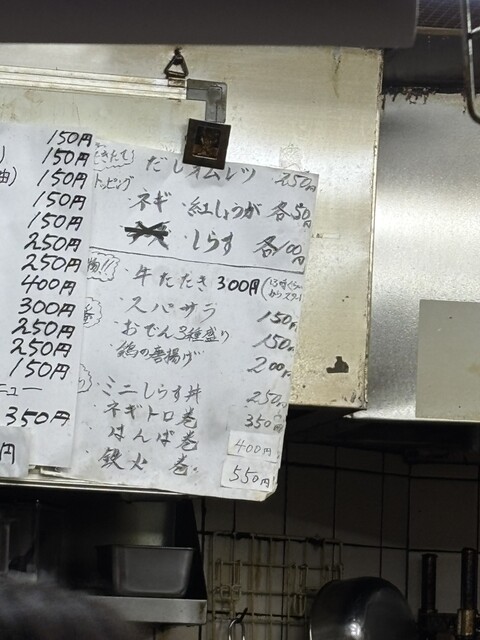 150円
150円
150円
150円
150円
250円
250円
400円
300円
250円
250円
150円
ニュー
350円
円
できたて
だしオムレツ 250円
トッピング
・ネギ ・紅しょうが 各50円
・しらす 各100円
物!!
・牛たたき 300円(13時ぐらいからスタート
・スパサラ 150円
・おでん3種盛り 150円
・鶏の唐揚げ 200円
・ミニしらす丼 250円
・ネギトロ巻 350円
・はんぱ巻 400円
・鉄火巻 550円